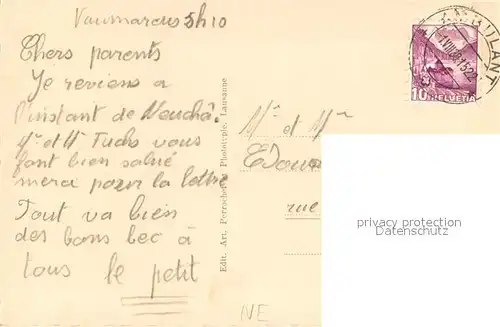 Vaumarcus 5h10
Chers parents
Je reviens a
l'instant de Neuchâ.
Mr et Me Fuchs vous
font bien salué
merci pour la lettre
Tout va bien
des bons bec à
tous le petit
Edit. Art. Perrochet Phototypie, Lausanne
AMBULANT
10 HELVETIA
Mr et Mme
Edoua
rue
privacy protection
Datenschutz
NE